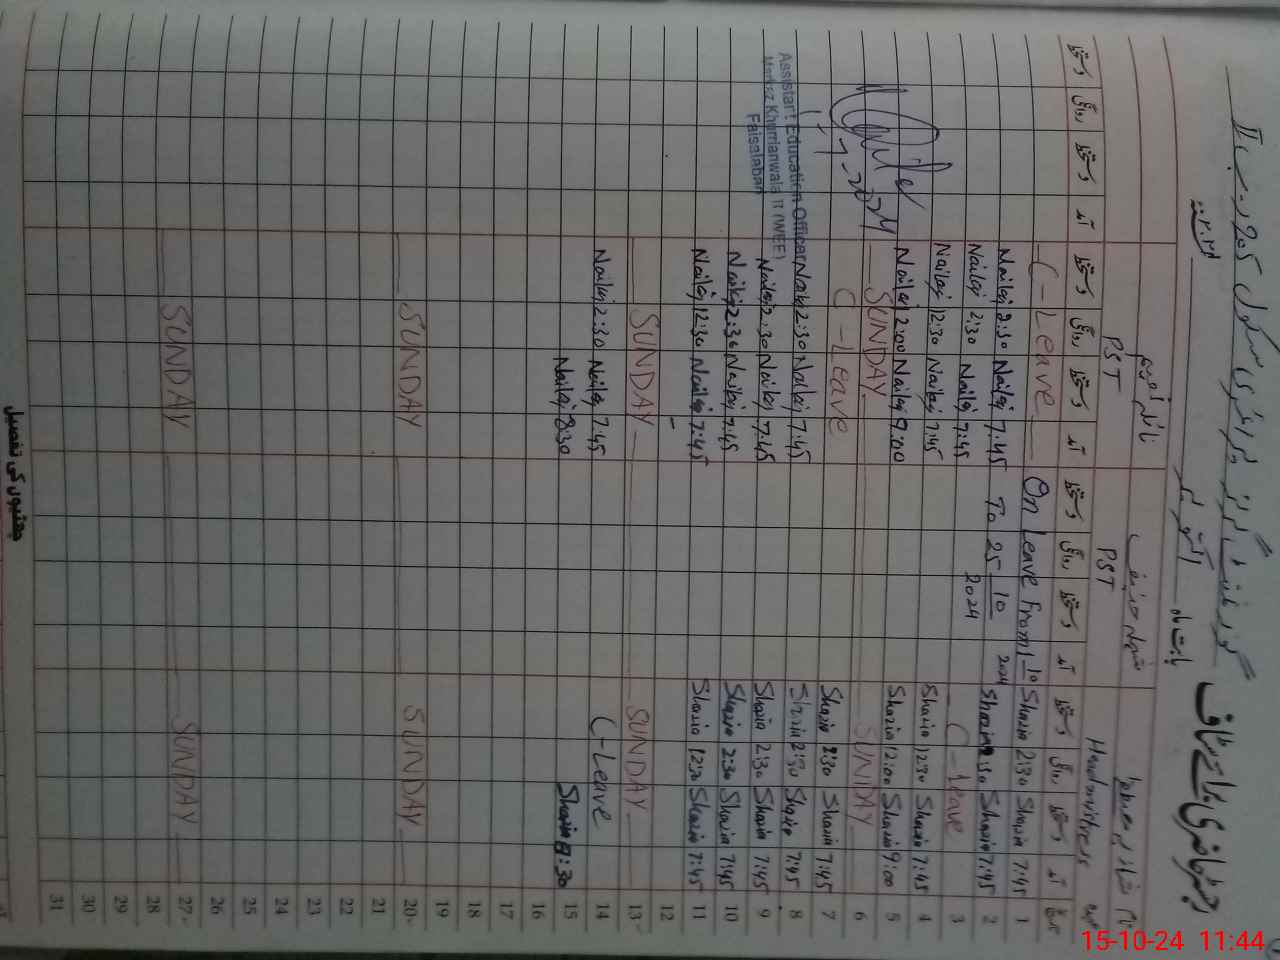 رجسٹر حاضری برائے سٹاف گورنمنٹ گرلز پرائمری سکول 205 ر۔ب II
بابت ماہ اکتوبر ۲۰۲۴ء
نام
PST PST Headmistress عہدہ
دستخط روانگی دستخط آمد دستخط روانگی دستخط آمد دستخط روانگی دستخط آمد دستخط روانگی دستخط آمد تاریخ
C-Leave On Leave From 1-10-2024 Shazia 2:30 Shazia 7:45 1
Naila 2:30 Naila 7:45 To 25-10-2024 Shazia 2:30 Shazia 7:45 2
Naila 2:30 Naila 7:45 C-Leave 3
Naila 12:30 Naila 7:45 Shazia 12:30 Shazia 7:45 4
Naila 12:00 Naila 9:00 Shazia 12:00 Shazia 9:00 5
SUNDAY SUNDAY 6
C-Leave Shazia 2:30 Shazia 7:45 7
Naila 2:30 Naila 7:45 Shazia 2:30 Shazia 7:45 8
Naila 2:30 Naila 7:45 Shazia 2:30 Shazia 7:45 9
Naila 2:30 Naila 7:45 Shazia 2:30 Shazia 7:45 10
Naila 12:30 Naila 7:45 Shazia 12:30 Shazia 7:45 11
12
SUNDAY SUNDAY 13
Naila 2:30 Naila 7:45 C-Leave 14
Naila 8:30 Shazia 8:30 15
16
17
18
19
SUNDAY SUNDAY 20
21
22
23
24
25
26
SUNDAY SUNDAY 27
28
29
30
31
Assistant Education Officer
Markaz Khurrianwala II (WEE)
Faisalabad
چھٹیوں کی تفصیل
15-10-24 11:44